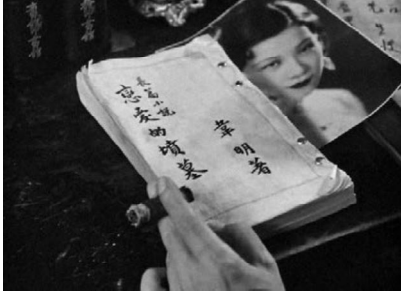 長篇小說
戀愛的墳墓
韋明著
先生